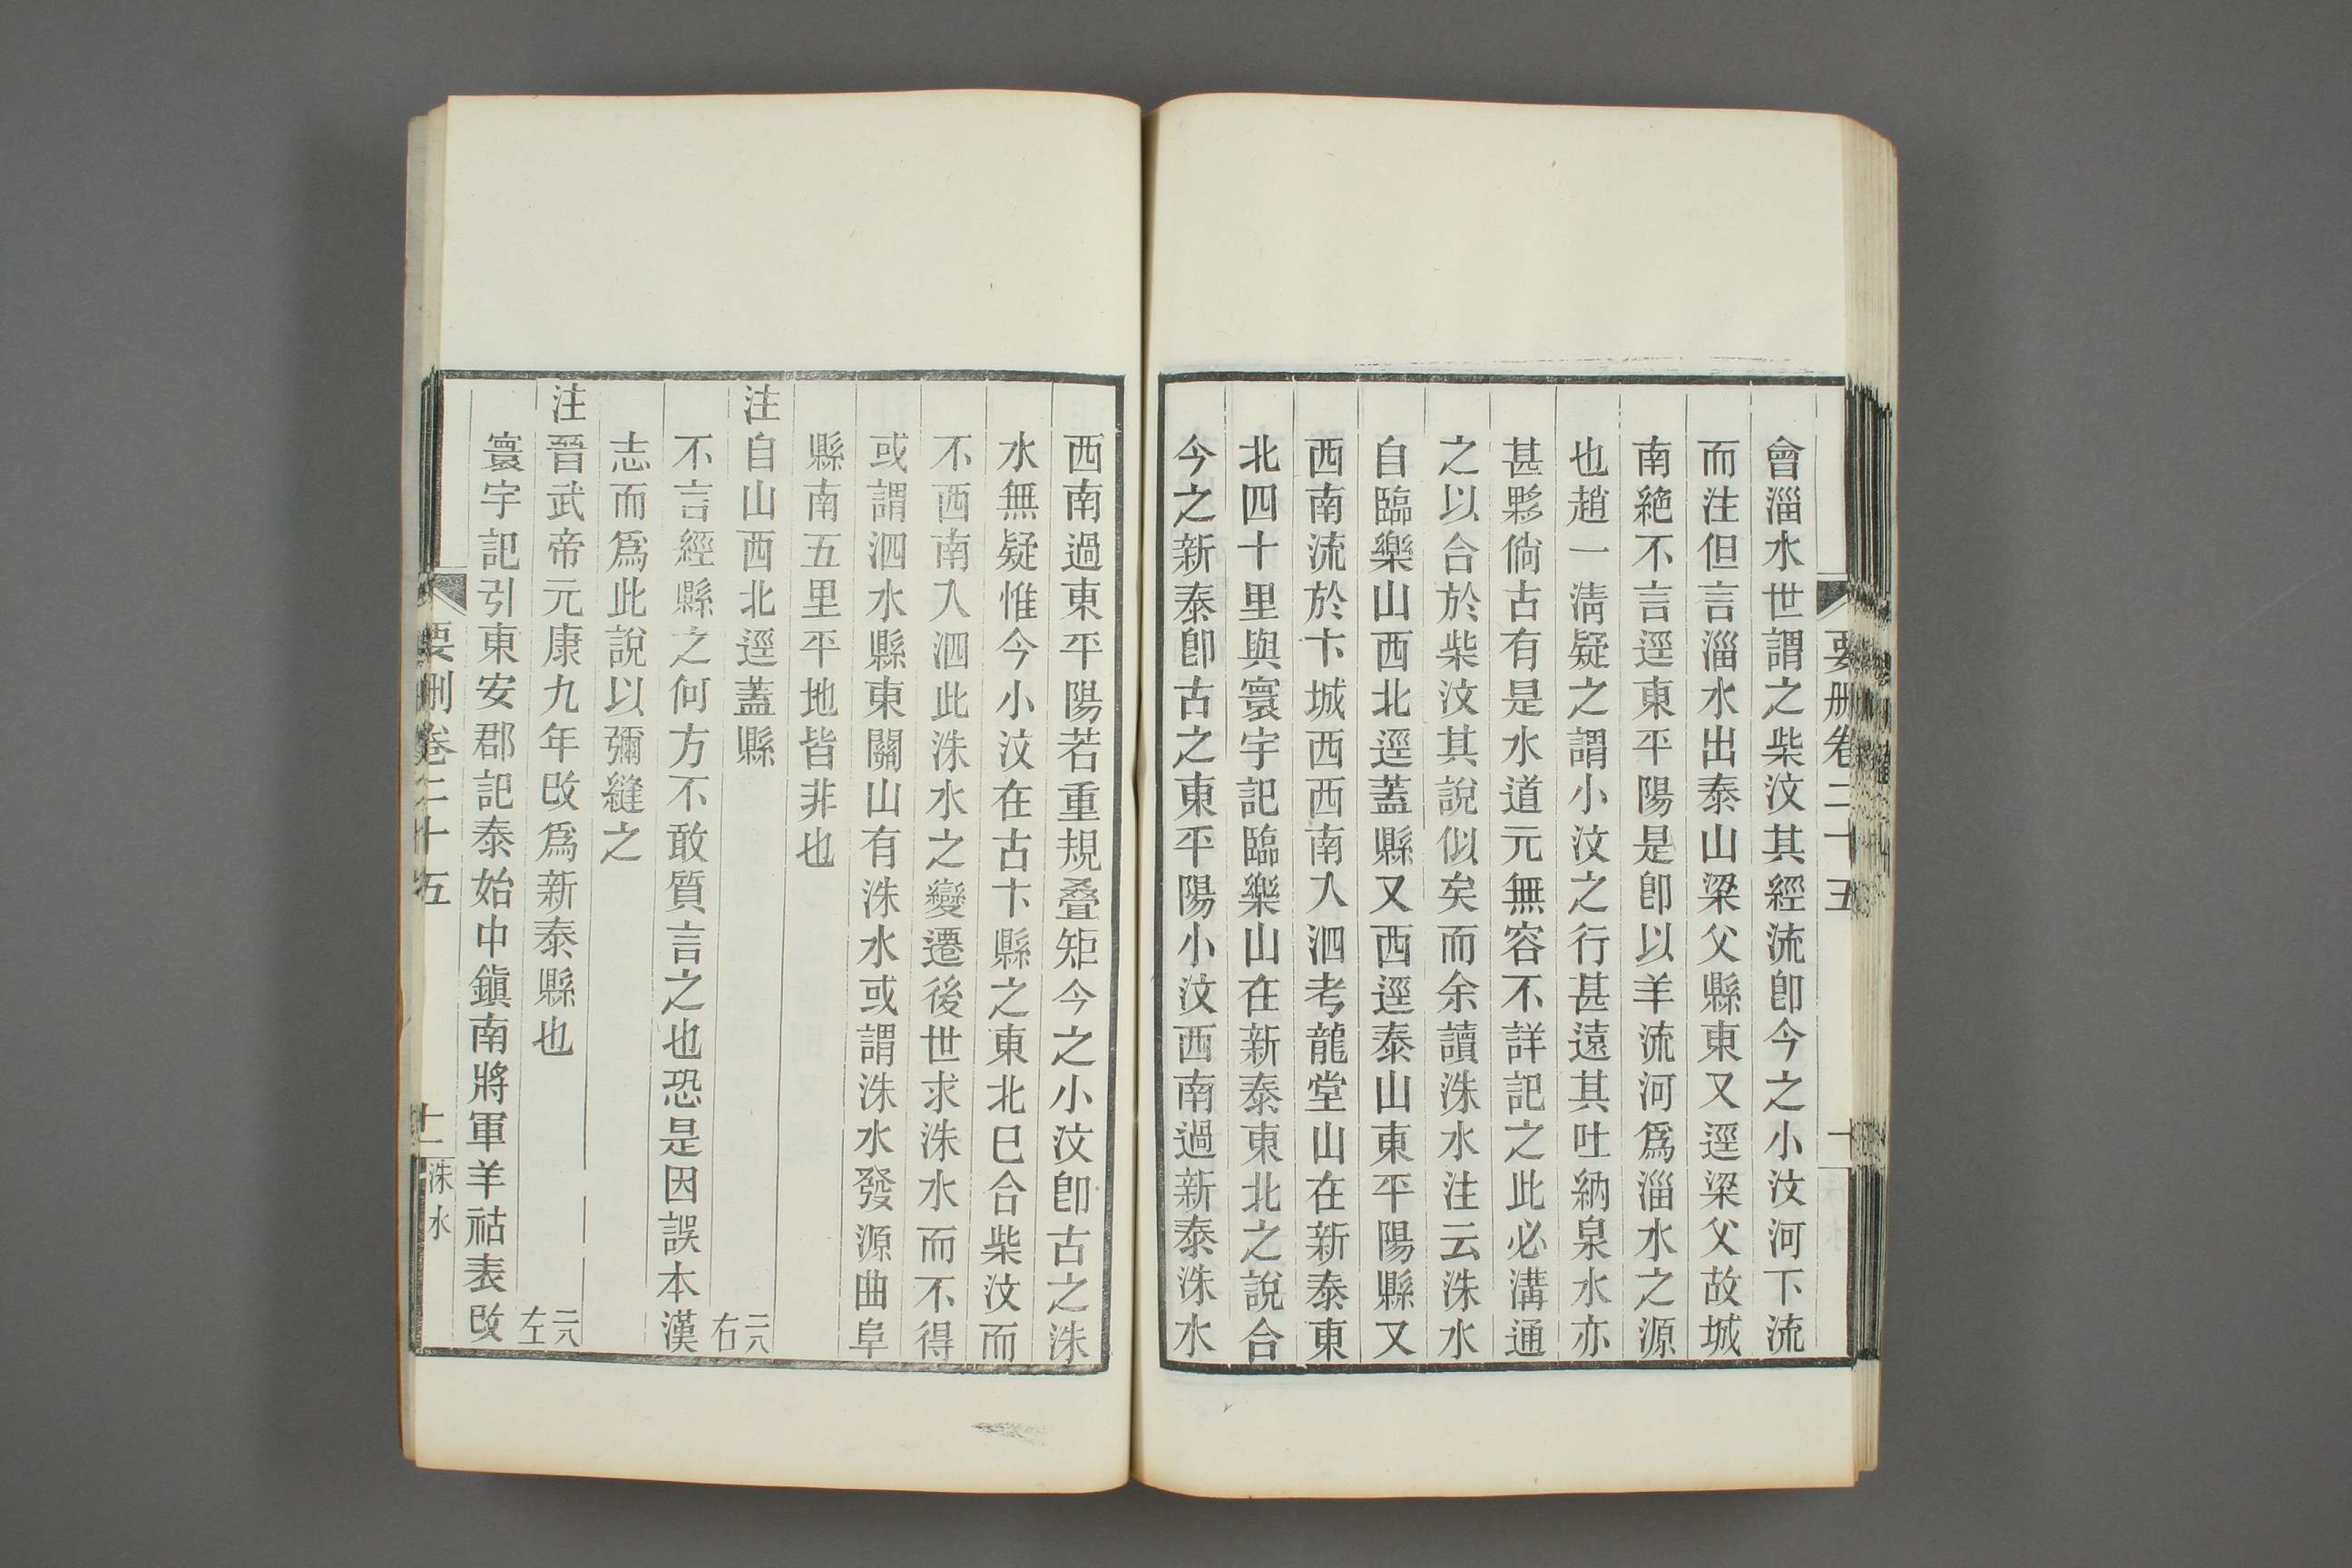 要刪卷二十五
十
會淄水世謂之柴汶其經流卽今之小汶河下流
而注但言淄水出泰山梁父縣東又逕梁父故城
南絶不言逕東平陽是卽以羊流河爲淄水之源
也趙一淸疑之謂小汶之行甚遠其吐納泉水亦
甚夥倘古有是水道元無容不詳記之此必溝通
之以合於柴汶其說似矣而余讀洙水注云洙水
自臨樂山西北逕蓋縣又西逕泰山東平陽縣又
西南流於卞城西西南入泗考龍堂山在新泰東
北四十里與寰宇記臨樂山在新泰東北之說合
今之新泰卽古之東平陽小汶西南過新泰洙水
西南過東平陽若重規叠矩今之小汶卽古之洙
水無疑惟今小汶在古卞縣之東北已合柴汶而
不西南入泗此洙水之變遷後世求洙水而不得
或謂泗水縣東關山有洙水或謂洙水發源曲阜
縣南五里平地皆非也
注自山西北逕蓋縣 二八右
不言經縣之何方不敢質言之也恐是因誤本漢
志而爲此說以彌縫之
注晉武帝元康九年改爲新泰縣也 二八左
寰宇記引東安郡記泰始中鎭南將軍羊祜表改
要刪卷二十五
十一
洙水